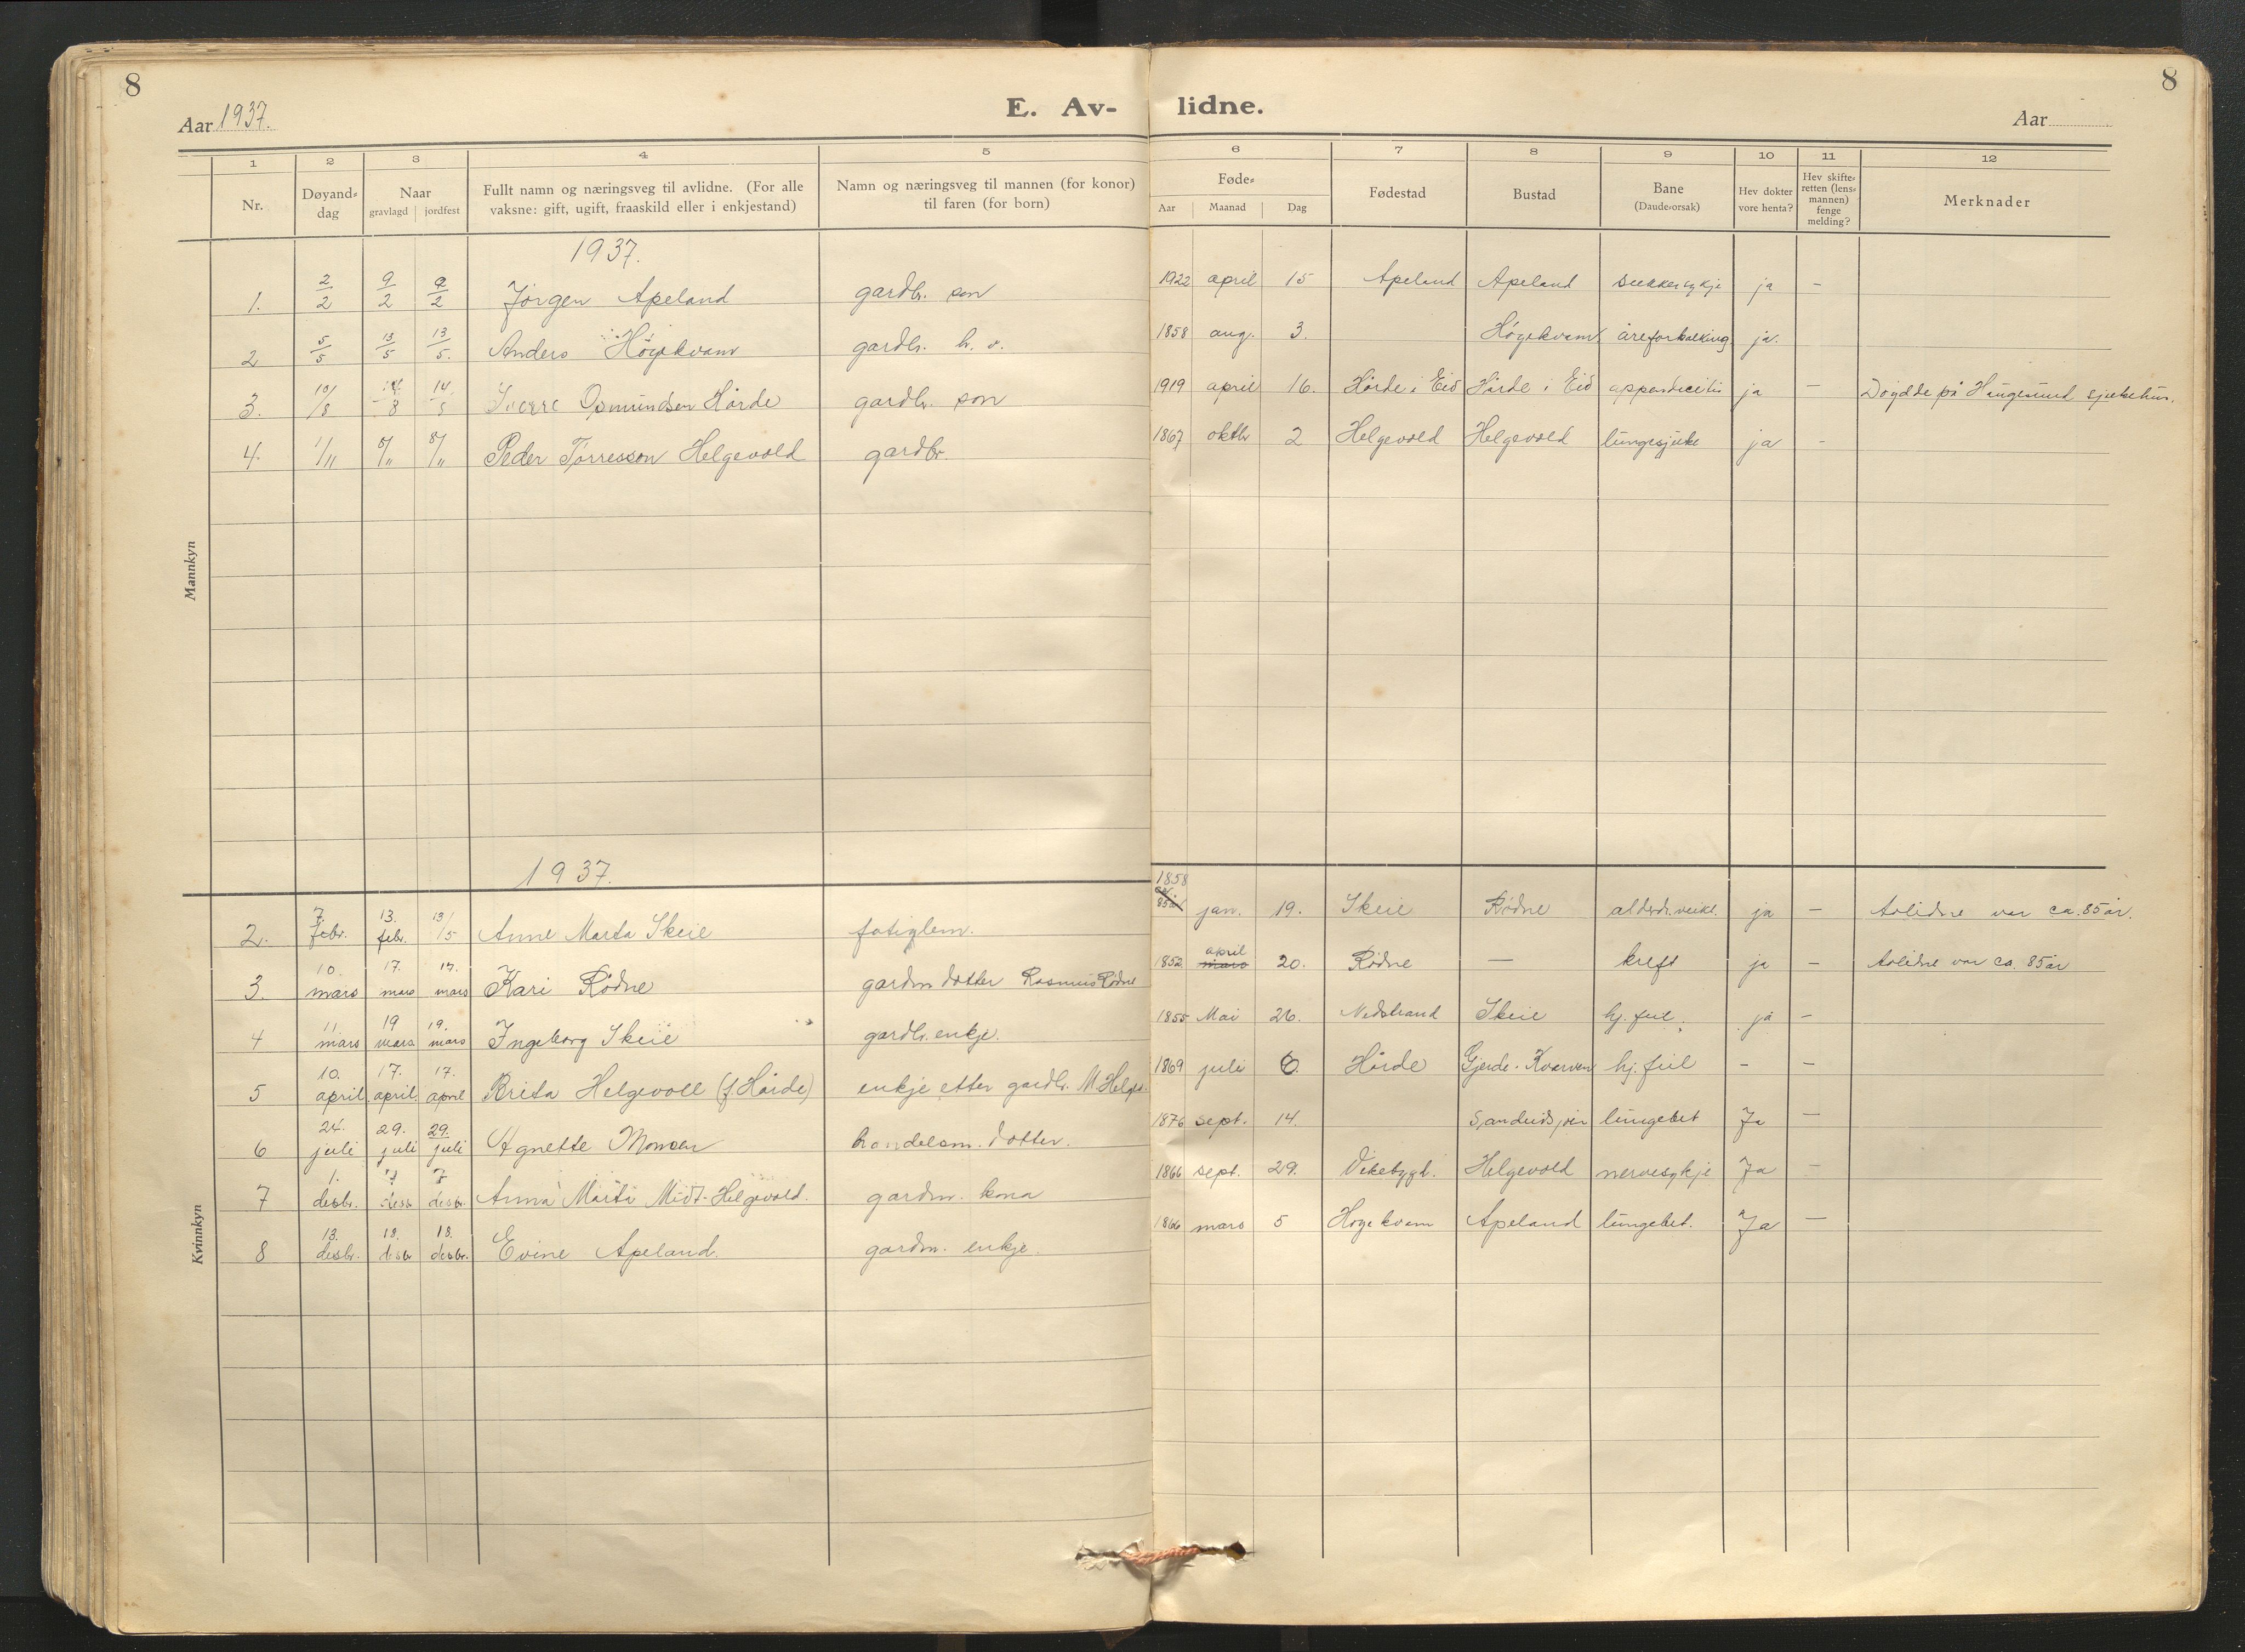 8
8
Aar 1937.
E. Av-
lidne.
Aar
1 2 3 4 5 6 7 8 9 10 11 12
Nr.
Døyand-
dag
Naar
gravlagd jordfest
Fullt namn og næringsveg til avlidne. (For alle
vaksne: gift, ugift, fraaskild eller i enkjestand)
Namn og næringsveg til mannen (for konor)
til faren (for born)
Føde-
Aar Maanad Dag
Fødestad
Bustad
Bane
(Daude-orsak)
Hev dokter
vore henta?
Hev skifte-
retten (lens-
mannen)
fenge
melding?
Merknader
Mannkyn
1937.
1. 2/2 9/2 9/2 Jørgen Apeland gardbr. son 1922 april 15 Apeland Apeland sukkersykje ja –
2 5/5 13/5 13/5. Anders Høgekvam gardbr. 1858 aug. 3. Høgekvam åreforkalking. ja.
3. 10/8 14/8 14/8 Sverre Osmundsen Hårde gardbr. son 1919 april 16. Hårde i Eid Hårde i Eid appendicitis ja – Døydde på Haugesund sjukehus.
4. 1/11 8/11 8/11 Peder Tørresson Helgevold gardbr. 1867 oktbr 2 Helgevold Helgevold lungesjuke ja –
Kvinnkyn
1937.
2. 7. febr. 13. febr. 13/5 Anne Marta Skeie fatiglem. 1858 jan. 19. Skeie Rødne alderdr.veikl. ja – Avlidne var ca. 85 år.
3. 10 mars 17. mars 17. mars Kari Rødne gardm dotter Rasmus Rødne 1852 april mars 20. Rødne — kreft ja – Avlidne var ca. 85 år
4 11 mars 19 mars 19. mars Ingeborg Skeie gardbr. enkje. 1855 Mai 26. Nedstrand Skeie hj. feil. ja –
5 10. april. 17. april. 17. april Brita Helgevoll (f. Hårde) enkje etter gardbr. M 1869 juli 6. Hårde Gjerde-Kvarven hj. feil – –
6 24. juli 29. juli 29. juli Agnette Monsen handelsm. dotter. 1876 sept. 14. lungebet Ja —
7 1. desbr. 7 desbr 7 desbr. Anna Marta Midt-Helgevold. gardm. kona 1866 sept. 29. Vikebygd. Helgevold nervesykje Ja –
8 13. desbr. 18. desbr 18. desbr. Evine Apeland. gardm. enkje. 1866 mars 5 Høgekvam Apeland lungebet. Ja —